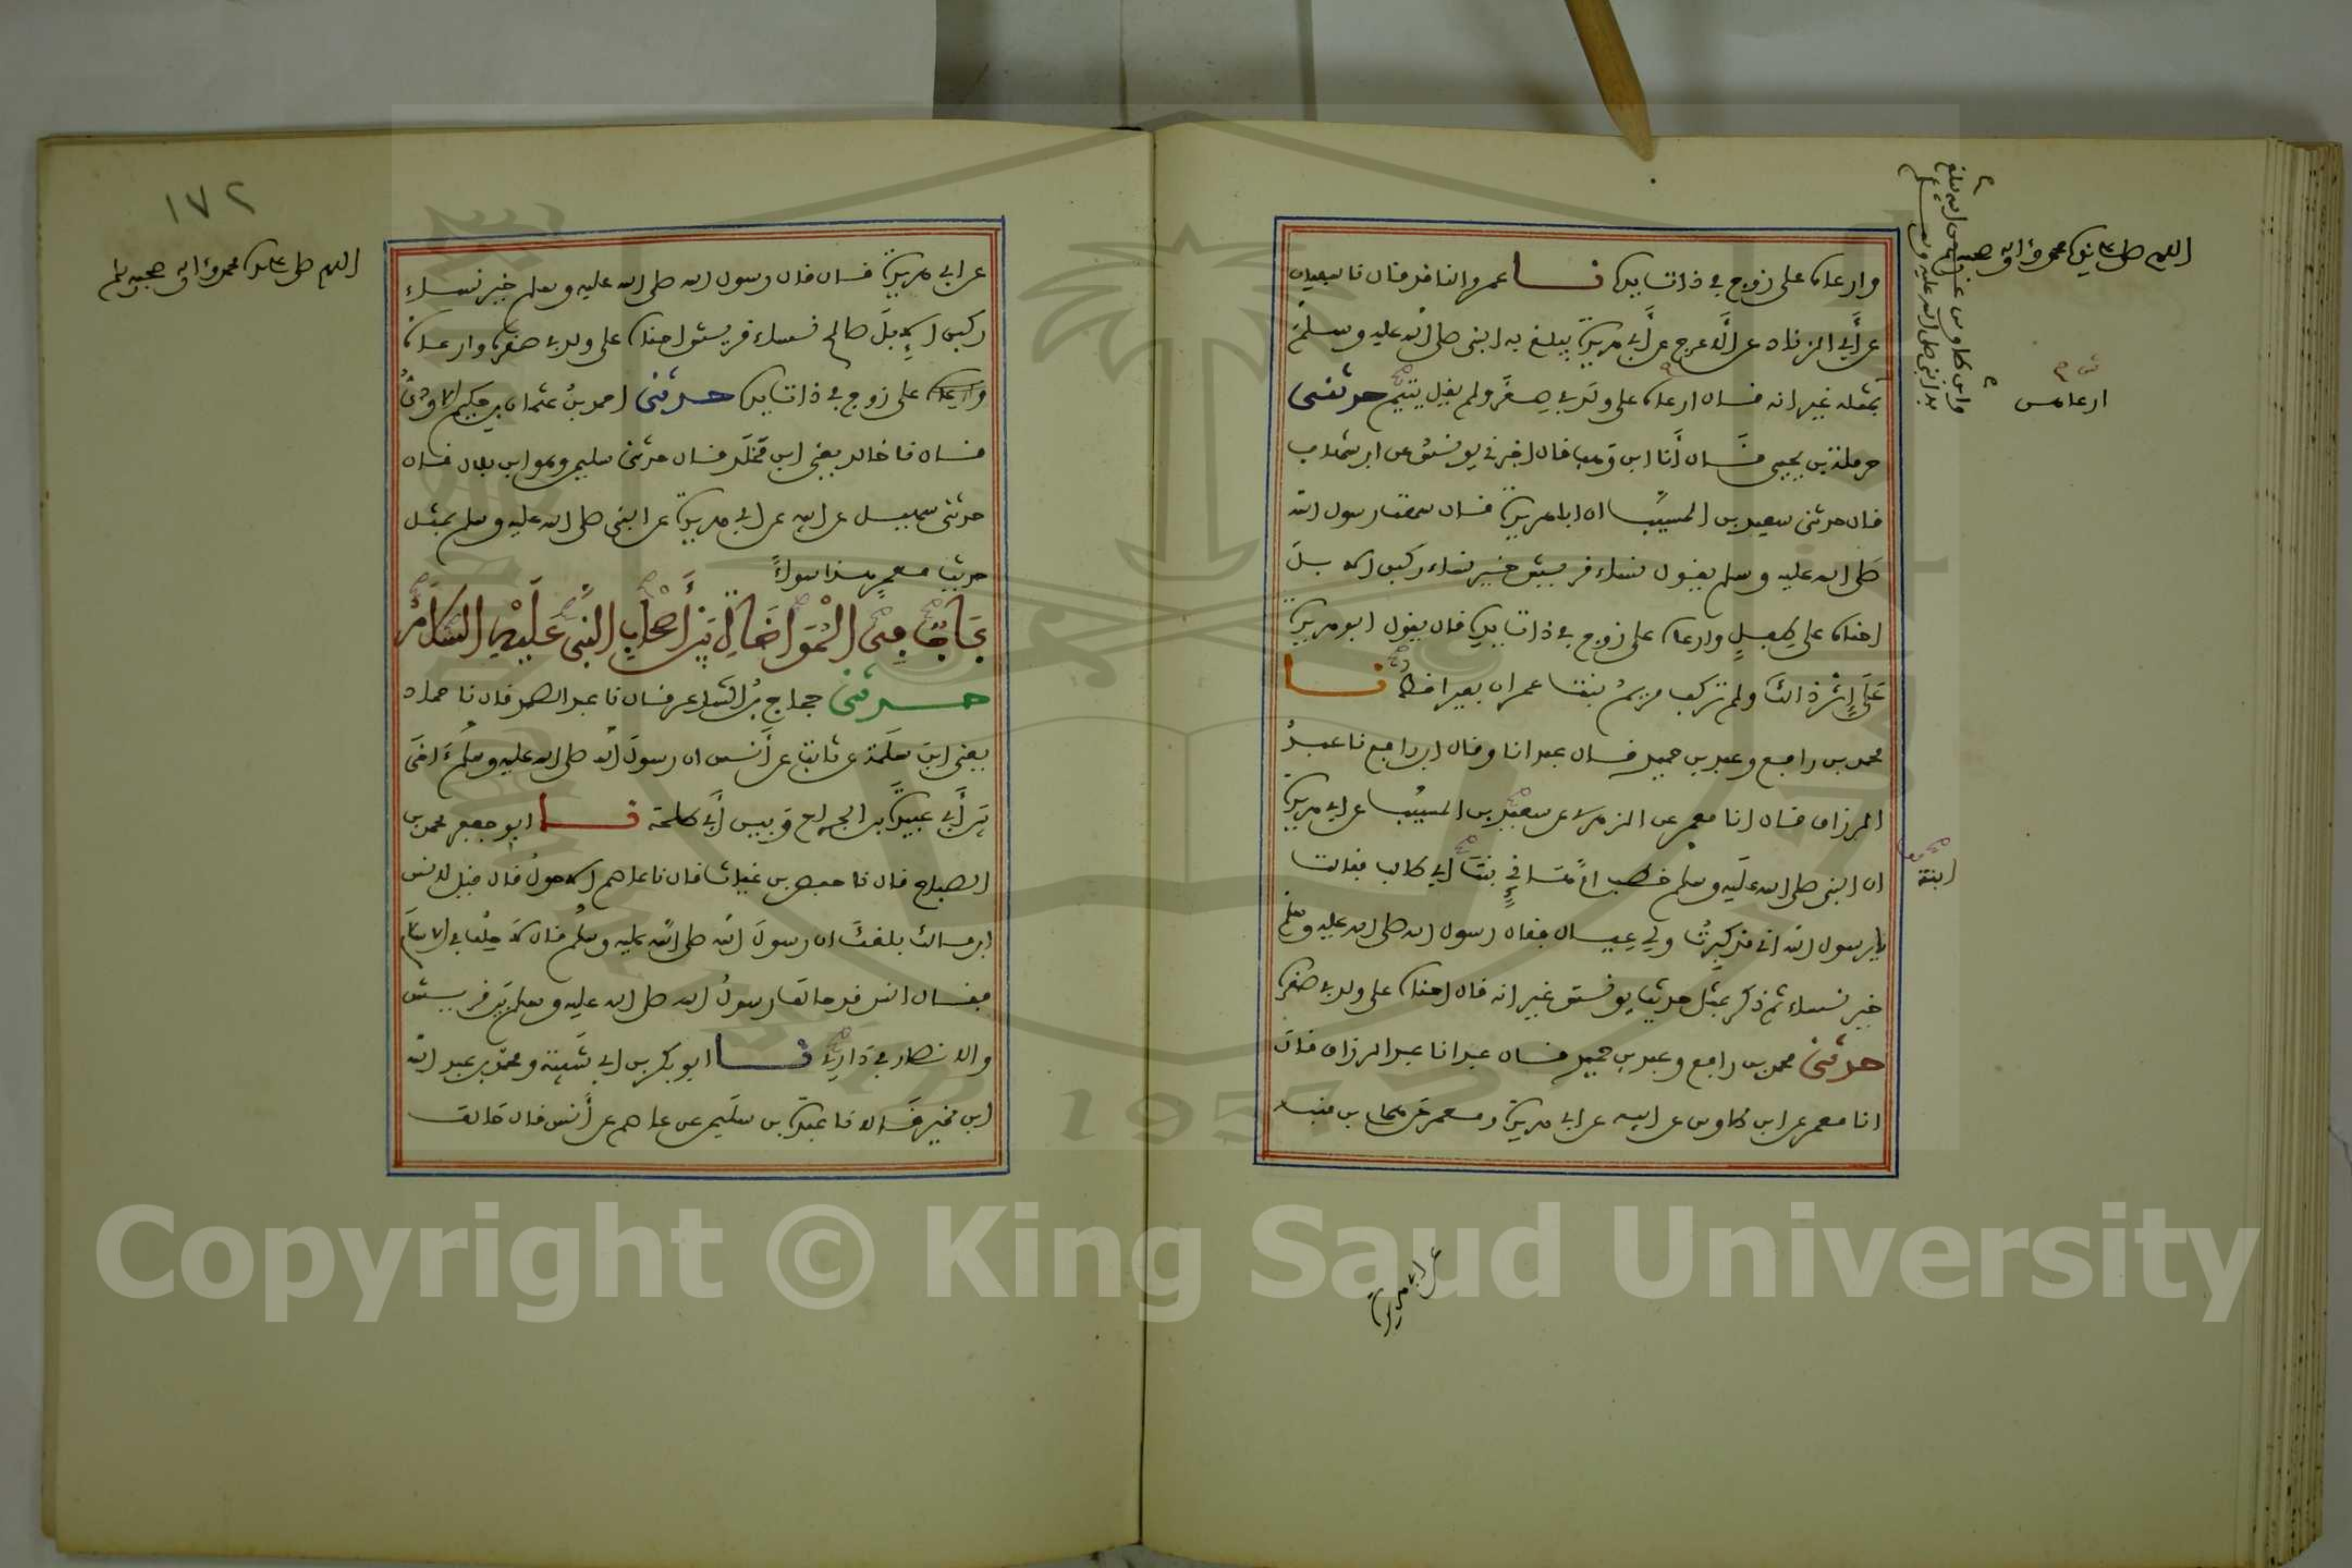 اللهم صل على سيدنا محمد وآله وصحبه وسلم
وارعاه على زوج في ذات يده نا عمرو الناقد قال نا سفيان
عن أبي الزناد عن الأعرج عن أبي هريرة يبلغ به النبي صلى الله عليه وسلم
بمثله غير انه قال ارعاه على ولد في صغره ولم يقل يتيم حدثني
حرملة بن يحيى قال أنا ابن وهب قال اخبرني يونس عن ابن شهاب
قال حدثني سعيد بن المسيب ان ابا هريرة قال سمعت رسول الله
صلى الله عليه وسلم يقول نساء قريش خير نساء ركبن الابل
احناه على طفل وارعاه على زوج في ذات يده قال يقول ابو هريرة
على إثر ذالك ولم تركب مريم بنت عمران بعيرا قط نا
محمد بن رافع وعبد بن حميد قال عبد انا وقال ابن رافع نا عبد
الرزاق قال انا معمر عن الزهري عن سعيد بن المسيب عن ابي هريرة
ان النبي صلى الله عليه وسلم خطب ام هانئ بنت ابي طالب فقالت
يا رسول الله اني قد كبرت ولي عيال فقال رسول الله صلى الله عليه وسلم
خير نساء ثم ذكر بمثل حديث يونس غير انه قال احناه على ولد في صغره
حدثني محمد بن رافع وعبد بن حميد قال عبد انا عبد الرزاق قال
انا معمر عن ابن طاوس عن ابيه عن ابي هريرة ومعمر عن همام بن منبه
ابنة
عن ابي هريرة
١٧٢
اللهم صل على سيدنا محمد وآله وصحبه وسلم
عن ابي هريرة قال قال رسول الله صلى الله عليه وسلم خير نساء
ركبن الإبل صالح نساء قريش احناه على ولد في صغره وارعاه
وارعاه على زوج في ذات يده حدثني احمد بن عثمان بن حكيم الاودي
قال نا خالد يعني ابن مخلد قال حدثني سليمن وهو ابن بلال قال
حدثني سهيل عن ابيه عن ابي هريرة عن النبي صلى الله عليه وسلم بمثل
حديث معمر هذا سواء
باب في المواخاة بين أصحاب النبي عليه السلام
حدثني حجاج بن الشاعر قال نا عبد الصمد قال نا حماد
يعني ابن سلمة عن ثابت عن أنس ان رسول الله صلى الله عليه وسلم اخى
بين أبي عبيدة بن الجراح وبين أبي طلحة نا ابو جعفر محمد بن
الصباح قال نا حفص بن غياث قال نا عاصم الاحول قال قيل لانس
ابن مالك بلغك ان رسول الله صلى الله عليه وسلم قال لا حلف في الاسلام
فقال انس قد حالف رسول الله صلى الله عليه وسلم بين قريش
والانصار في داره نا ابو بكر بن ابي شيبة ومحمد بن عبد الله
ابن نمير قالا نا عبدة بن سليمن عن عاصم عن أنس قال حالف
Copyright © King Saud University
1957